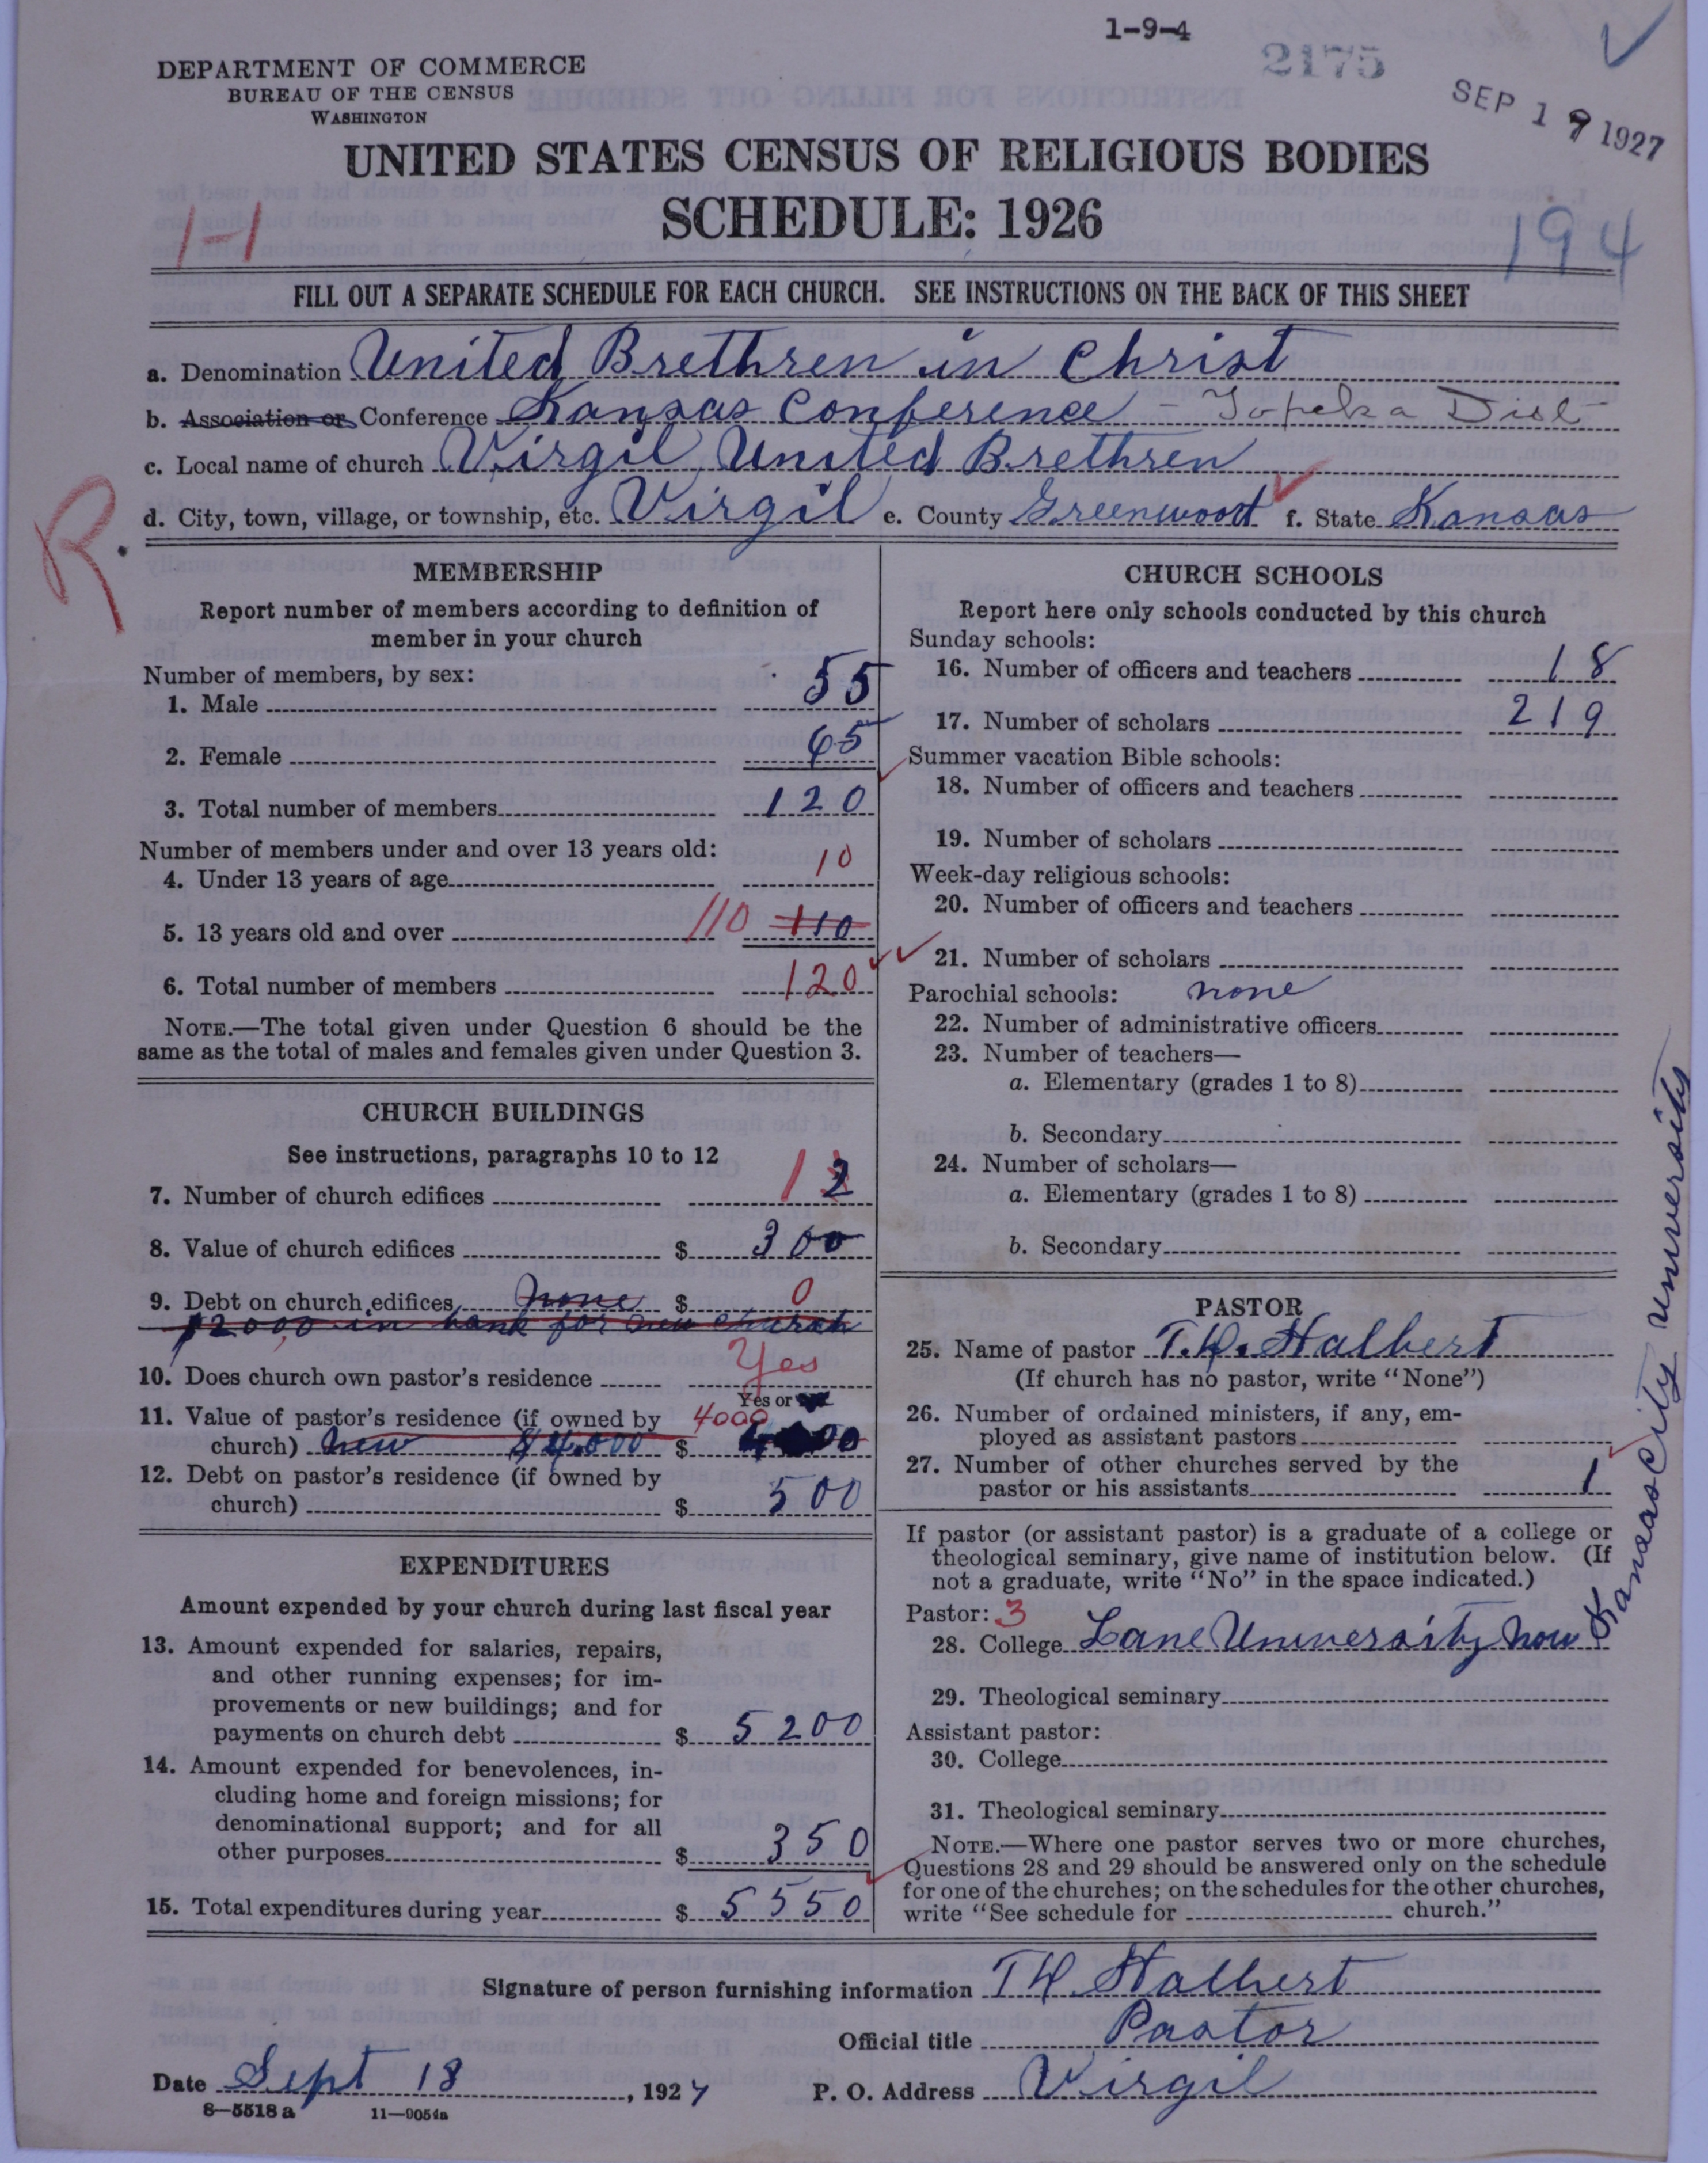 1-9-4
2175
SEP 1 9 1927
DEPARTMENT OF COMMERCE
BUREAU OF THE CENSUS
WASHINGTON
UNITED STATES CENSUS OF RELIGIOUS BODIES
SCHEDULE: 1926
1-1
194
FILL OUT A SEPARATE SCHEDULE FOR EACH CHURCH. SEE INSTRUCTIONS ON THE BACK OF THIS SHEET
a. Denomination United Brethren in Christ
b. Association or Conference Kansas Conference - Topeka Dist
c. Local name of church Virgil United Brethren
d. City, town, village, or township, etc. Virgil e. County Greenwood f. State Kansas
R.
MEMBERSHIP
Report number of members according to definition of
member in your church
Number of members, by sex:
1. Male 55
2. Female 65
3. Total number of members 120
Number of members under and over 13 years old:
4. Under 13 years of age 10
5. 13 years old and over 110 110
6. Total number of members 120
NOTE.—The total given under Question 6 should be the
same as the total of males and females given under Question 3.
CHURCH BUILDINGS
See instructions, paragraphs 10 to 12
7. Number of church edifices 1 2
8. Value of church edifices $ 300
9. Debt on church edifices none $ 0
$2000 in bank for new church
10. Does church own pastor's residence Yes
Yes or
11. Value of pastor's residence (if owned by 4000
church) new $4,000 $
12. Debt on pastor's residence (if owned by
church) $ 500
EXPENDITURES
Amount expended by your church during last fiscal year
13. Amount expended for salaries, repairs,
and other running expenses; for im-
provements or new buildings; and for
payments on church debt $ 5200
14. Amount expended for benevolences, in-
cluding home and foreign missions; for
denominational support; and for all
other purposes $ 350
15. Total expenditures during year $ 5550
CHURCH SCHOOLS
Report here only schools conducted by this church
Sunday schools:
16. Number of officers and teachers 18
17. Number of scholars 219
Summer vacation Bible schools:
18. Number of officers and teachers
19. Number of scholars
Week-day religious schools:
20. Number of officers and teachers
21. Number of scholars
Parochial schools: none
22. Number of administrative officers
23. Number of teachers—
a. Elementary (grades 1 to 8)
b. Secondary
24. Number of scholars—
a. Elementary (grades 1 to 8)
b. Secondary
PASTOR
25. Name of pastor T. H. Halbert
(If church has no pastor, write "None")
26. Number of ordained ministers, if any, em-
ployed as assistant pastors
27. Number of other churches served by the
pastor or his assistants 1
If pastor (or assistant pastor) is a graduate of a college or
theological seminary, give name of institution below. (If
not a graduate, write "No" in the space indicated.)
Pastor: 3
28. College Lane University now Kansas City university
29. Theological seminary
Assistant pastor:
30. College
31. Theological seminary
NOTE.—Where one pastor serves two or more churches,
Questions 28 and 29 should be answered only on the schedule
for one of the churches; on the schedules for the other churches,
write "See schedule for church."
Signature of person furnishing information T H. Halbert
Official title Pastor
Date Sept 18, 1927 P. O. Address Virgil
8—5518 a 11—9054a